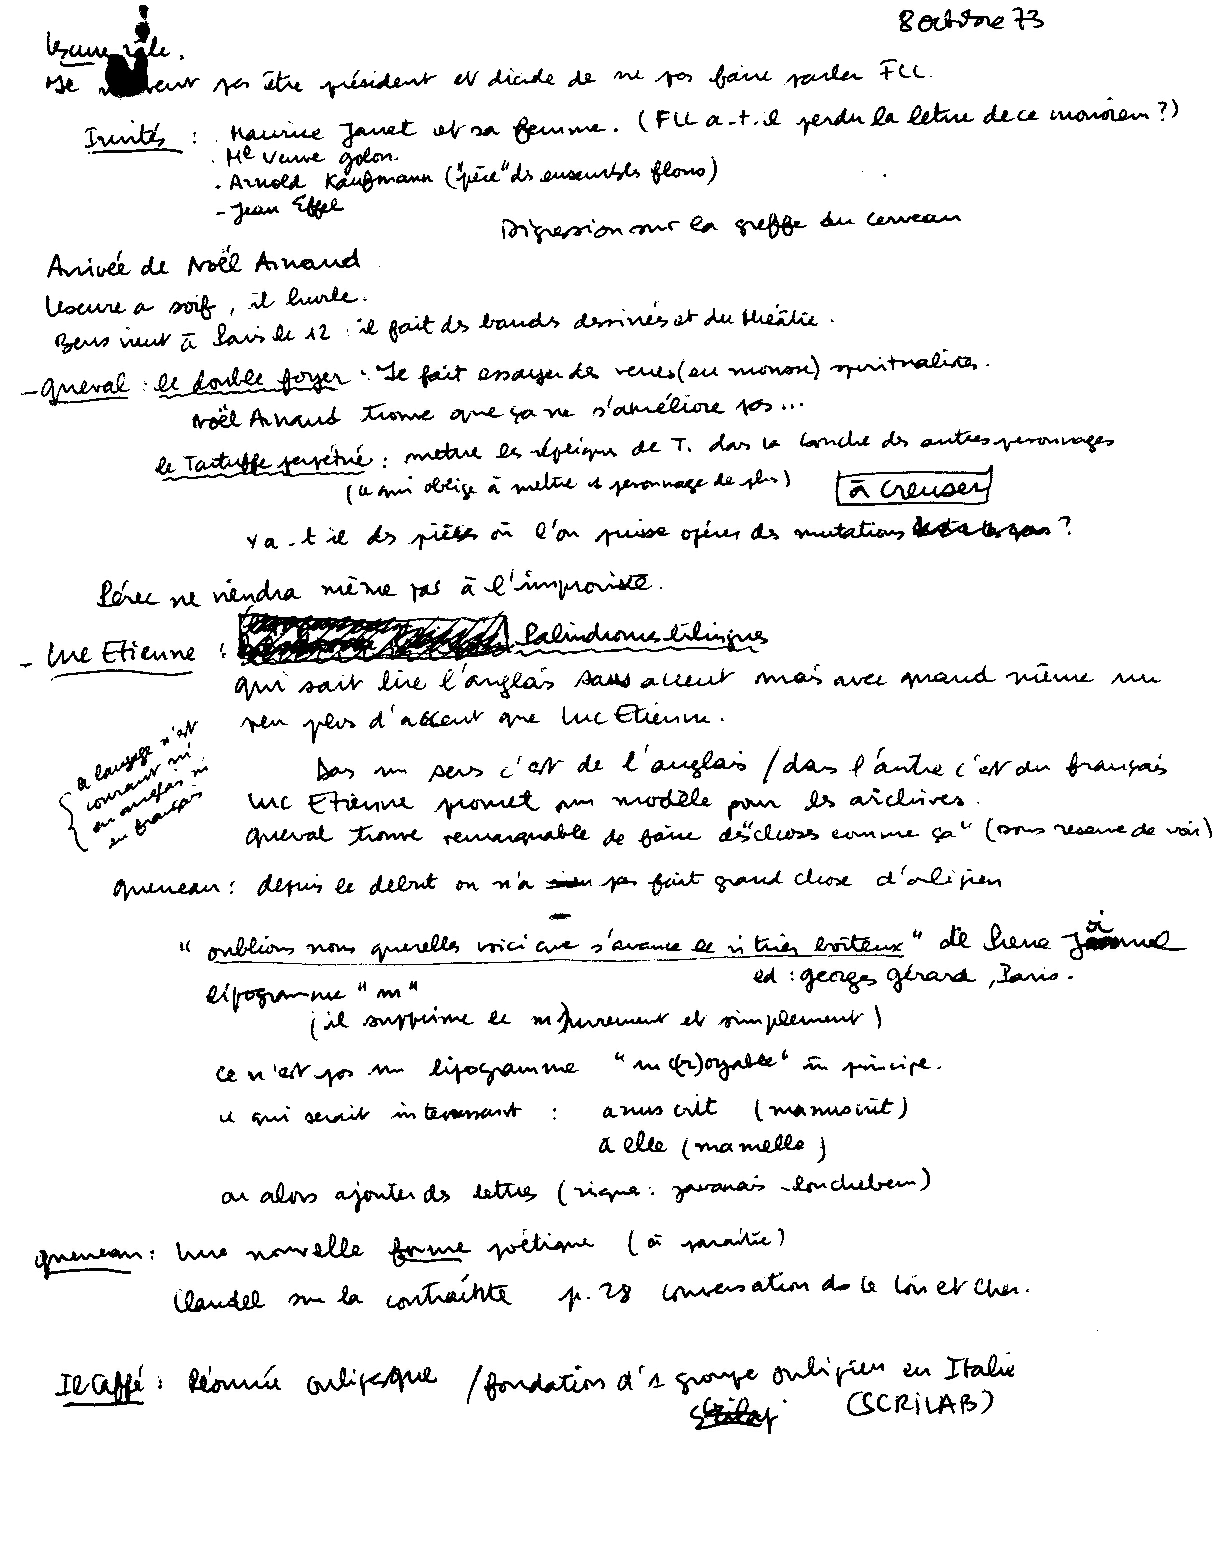 8 octobre 73
Lescure râle.
Ne veut pas être président et décide de ne pas faire parler FLL.
Invités : . Maurice Janet et sa femme. (FLL a-t-il perdu la lettre de ce monsieur ?)
. Me Veuve Golon.
. Arnold Kaufmann ("père" des ensembles flous)
- Jean Effel
Digression sur la greffe du cerveau
Arrivée de Noël Arnaud
Lescure a soif, il hurle.
Bens vient à Paris le 12 : il fait des bandes dessinées et du théâtre.
- Queval : le double foyer : Il fait essayer des verres (au monose) spiritualistes.
Noël Arnaud trouve que ça ne s'améliore pas...
le Tartuffe perpétué : mettre les répliques de T. dans la bouche des autres personnages
(ce qui oblige à mettre 1 personnage de plus) à creuser
Y a-t-il des pièces où l'on puisse opérer des mutations ?
Pérec ne viendra même pas à l'improviste.
- Luc Etienne : Palindromes bilingues
qui sait lire l'anglais sans accent mais avec quand même un
peu plus d'accent que Luc Etienne.
Dans un sens c'est de l'anglais / dans l'autre c'est du français
ce langage n'est
courant ni
en anglais ni
en français
Luc Etienne promet un modèle pour les archives.
Queval trouve remarquable de faire des "choses comme ça" (sous reserve de voir)
Queneau : depuis le début on n'a pas fait grand chose d'oulipien
" oublions nous querelles voici que s'avance le vitrier boiteux " de Pierre
ed : georges Gérard, Paris.
lipogramme "m"
(il supprime le m purement et simplement)
ce n'est pas un lipogramme "in(cr)oyable" en principe.
ce qui serait interessant : anuscrit (manuscrit)
a elle (mamelle)
ou alors ajouter des lettres (risque : javanais - louchebem)
Queneau : Une nouvelle forme poétique (à paraître)
Claudel sur la contrainte p. 28 conversation ds le Loir et Cher.
Il Caffé : Réunion oulipesque / fondation d'1 groupe oulipien en Italie
(SCRILAB)